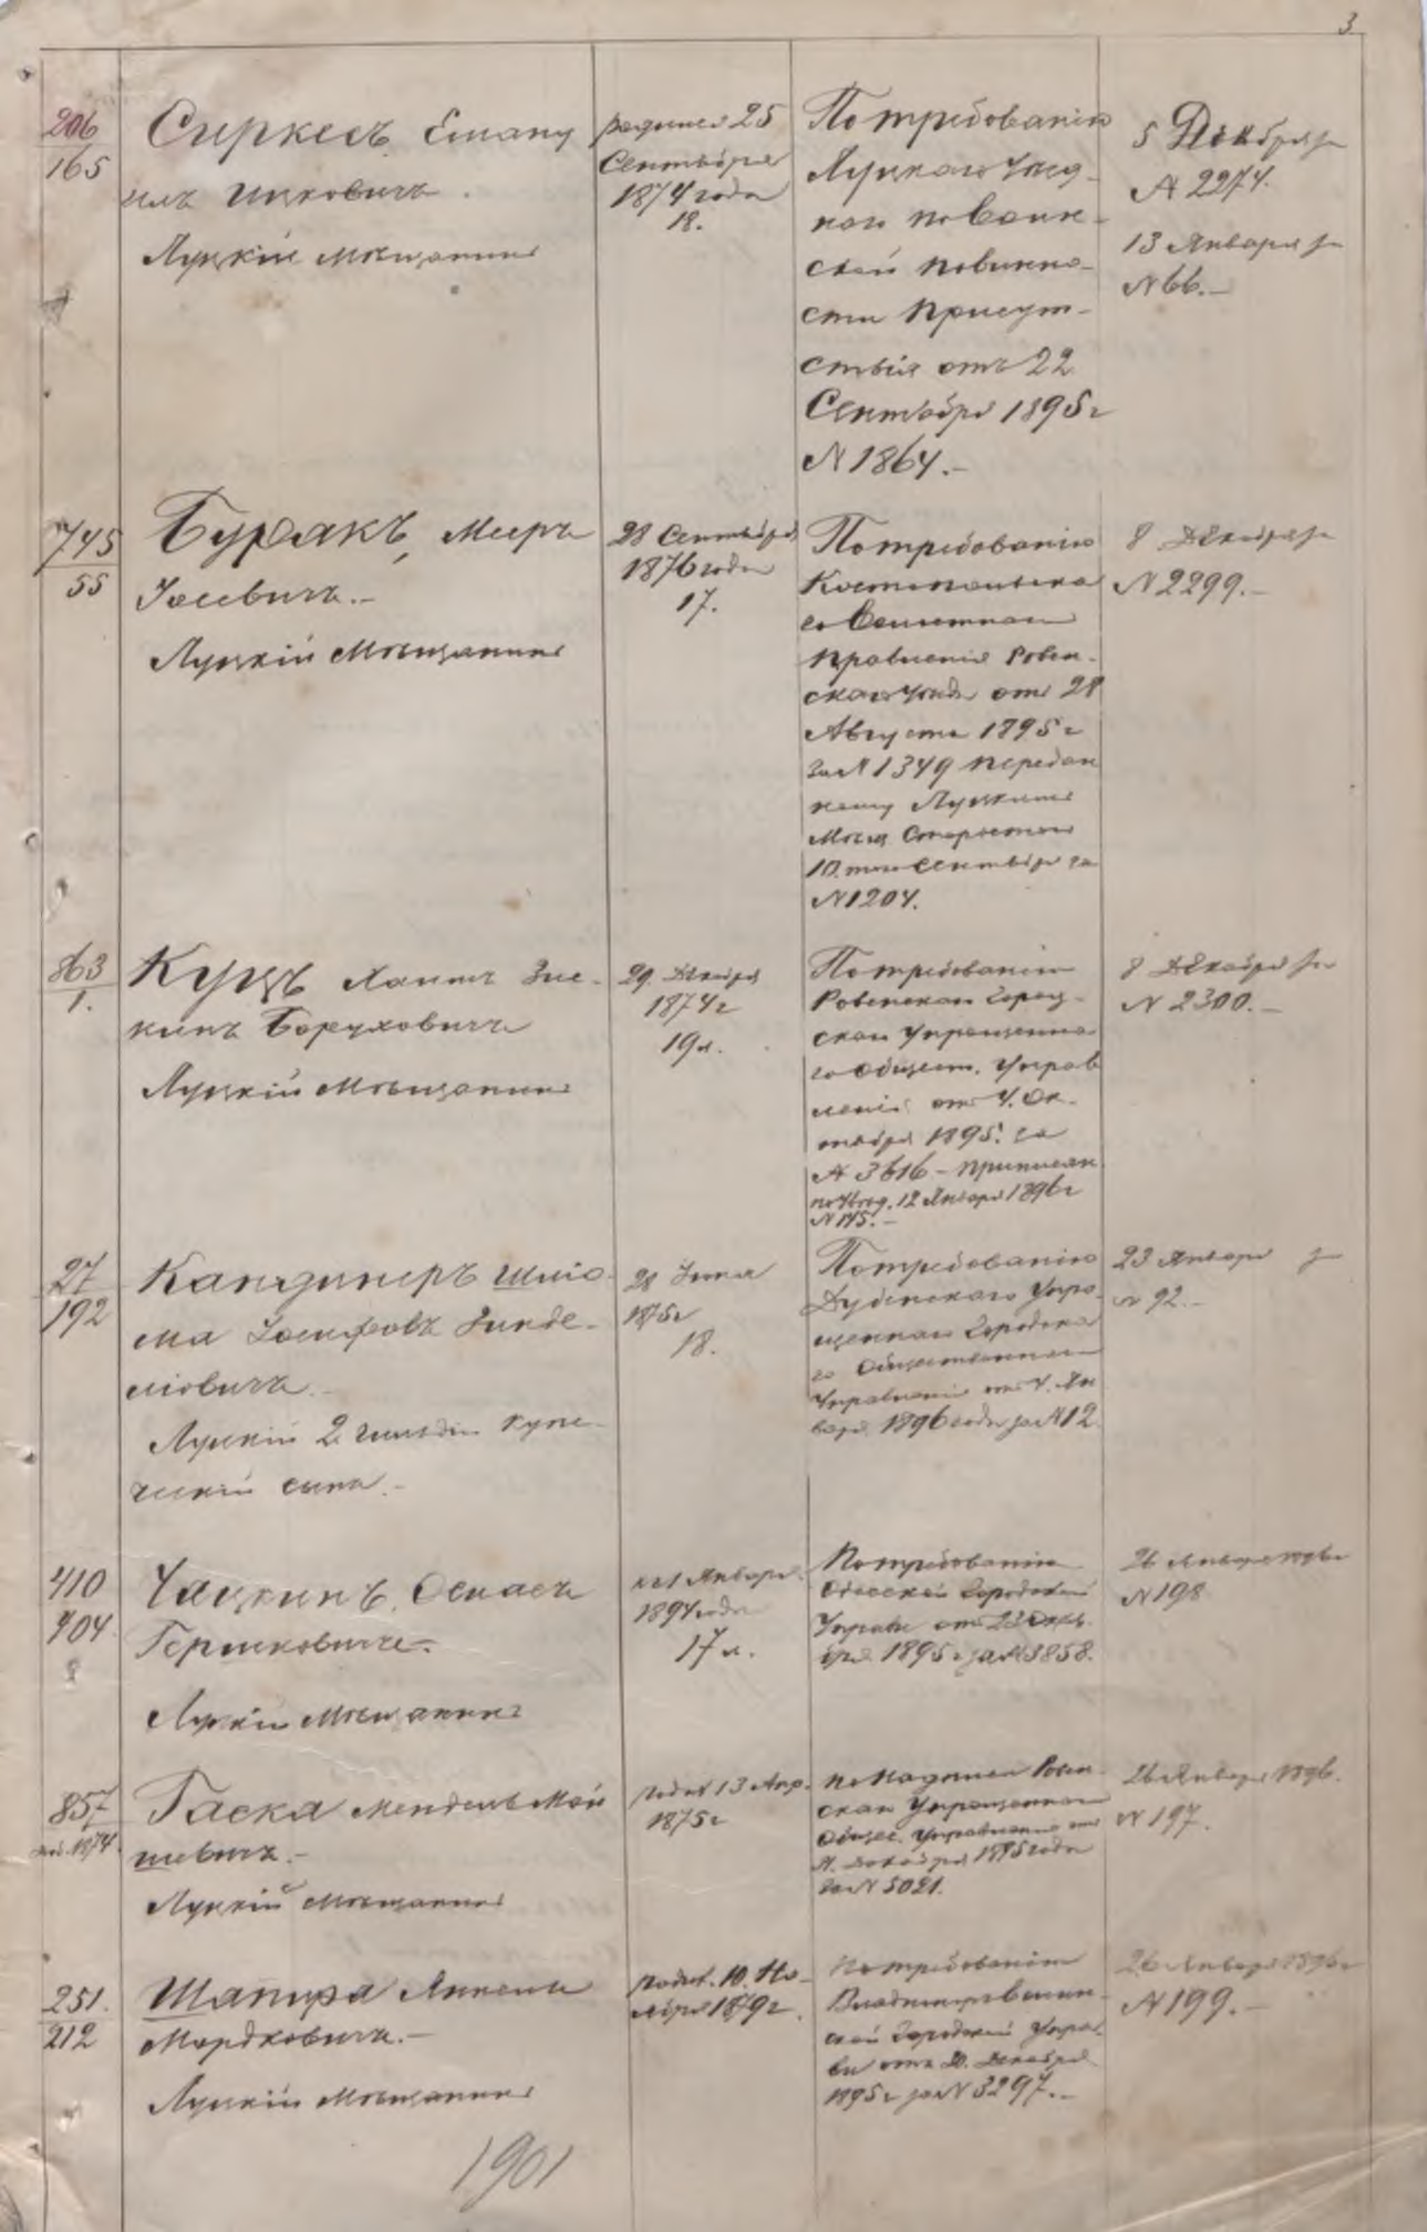 3
206
165
Сиркесъ Еману
илъ Ицковичъ
Луцкій мѣщанинъ
родился 25
Сентября
1874 года
18.
По требованію
Луцкаго Уѣзд-
наго по воин-
ской повинно-
сти Присут-
ствія отъ 22
Сентября 1895 г
№ 1864.-
5 Декабря за
№ 2274.
13 Января за
№ 66.-
745
55
Буракъ, Мееръ
Іосевичъ.-
Луцкій Мѣщанинъ
28 Сентября
1876 года
17.
По требованію
Костопольска
го Волостнаго
Правленія Ровен-
скаго уѣзда отъ 28
Августа 1895 г
за № 1349 передан
ному Луцкимъ
Мѣщ Старостою
10 того Сентября за
№ 1204.
8 Декабря за
№ 2299.-
863
1.
Купецъ Хаимъ Зис-
кинъ Боруховичъ
Луцкій Мѣщанинъ
29 Декабря
1874 г
19 л.
По требованію
Ровенскаго Город-
скаго Упрощенна-
го Общест. Управ
ленія отъ 4. Ок-
тября 1895. за
№ 3616 - приписан
12 Января 1896 г
№ 145.-
8 Декабря за
№ 2300.-
27
192
Кандинеръ Шліо-
ма Іосифовъ Зинде-
ліовичъ.-
Луцкій 2 гильдіи купе-
ческій сынъ.-
28 Іюня
1875 г
18.
По требованію
Дубенскаго Упро-
щеннаго Городска
го Общественнаго
Управленія отъ 4. Ян
варя 1896 года за № 12.
23 Января за
№ 92.-
410
404
Чацкинъ, Осиасъ
Гершковичъ.-
Луцкій Мѣщанинъ
1 Января
1894 года
17 л.
По требованію
Одесской Городской
Управы отъ 23 Октя-
бря 1895 г за № 3858.
26 Января 1896 г
№ 198
857
1874
Гаска Мендель Мой
шевичъ.-
Луцкій мѣщанинъ
родил 13 Апр.
1875 г
По надписи Ровен-
скаго Упрощеннаго
Общес. Управленія отъ
Декабря 1895 года
за № 5021.
26 Января 1896.
№ 197.
251.
212
Шапира Янкель
Мордковичъ.-
Луцкій Мѣщанинъ
родил. 10. Но-
ября 1879 г.
По требованію
Владимірволын-
ской Городской Упра-
вы отъ 20. Декабря
1895 г за № 3297.-
26 Января 1896 г
№ 199.-
1901